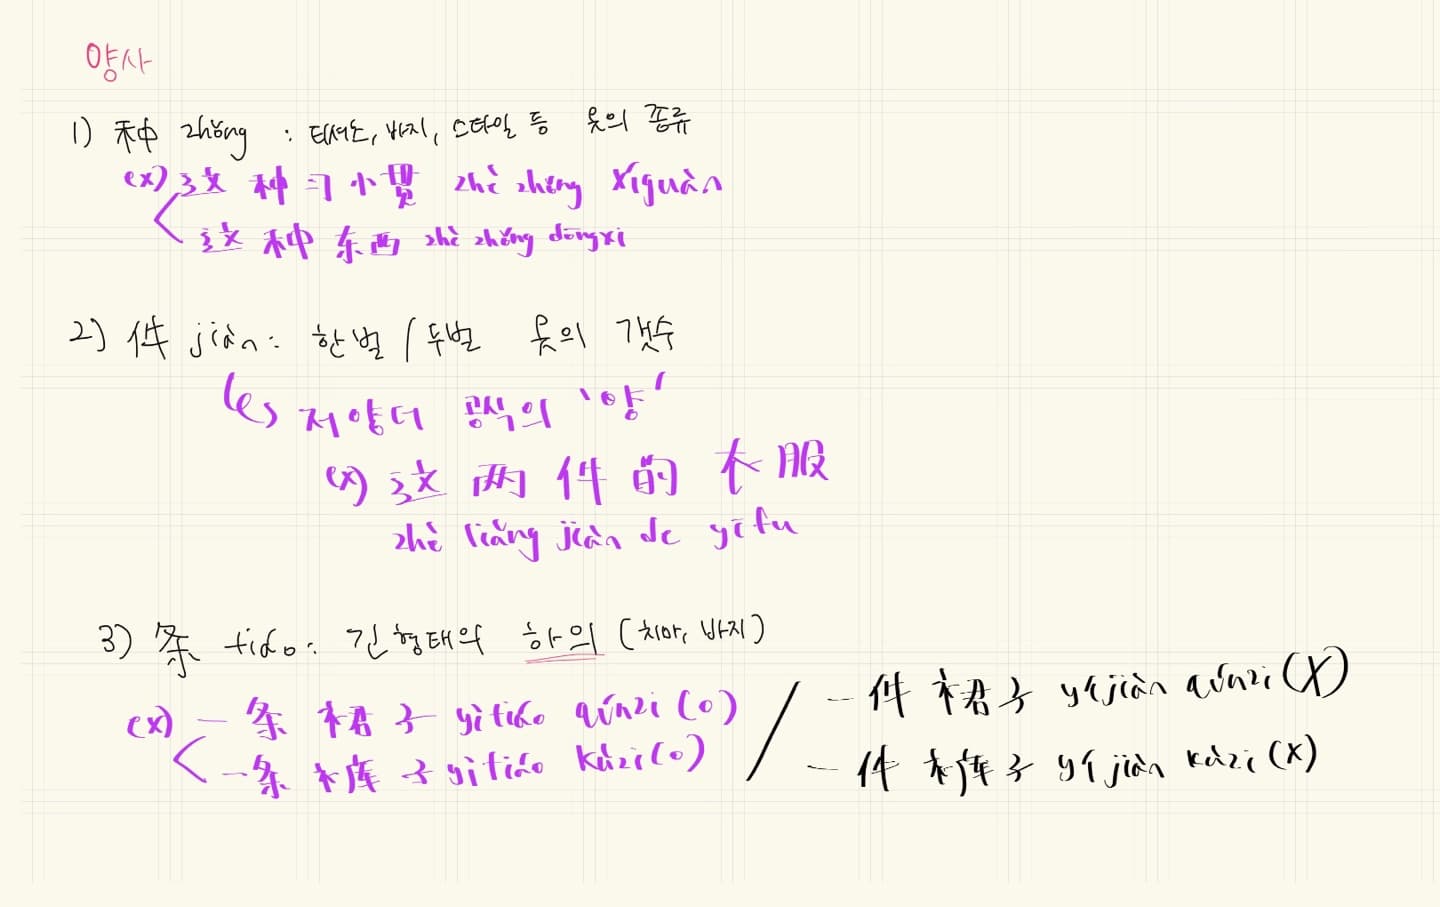 양사
1) 种 zhǒng : 티셔츠, 바지, 스타일 등 옷의 종류
ex) 这 种 习 惯 zhè zhǒng xíguàn
这 种 东 西 zhè zhǒng dōngxi
2) 件 jiàn : 한벌 / 두벌 옷의 갯수
공식의 '양'
ex) 这 两 件 的 衣 服
zhè liǎng jiàn de yīfu
3) 条 tiáo : 긴 형태의 하의 (치마, 바지)
ex) 一 条 裙 子 yìtiáo qúnzi (o) / 一 件 裙 子 yíjiàn qúnzi (X)
一 条 裤 子 yìtiáo kùzi (o) 一 件 裤 子 yíjiàn kùzi (X)